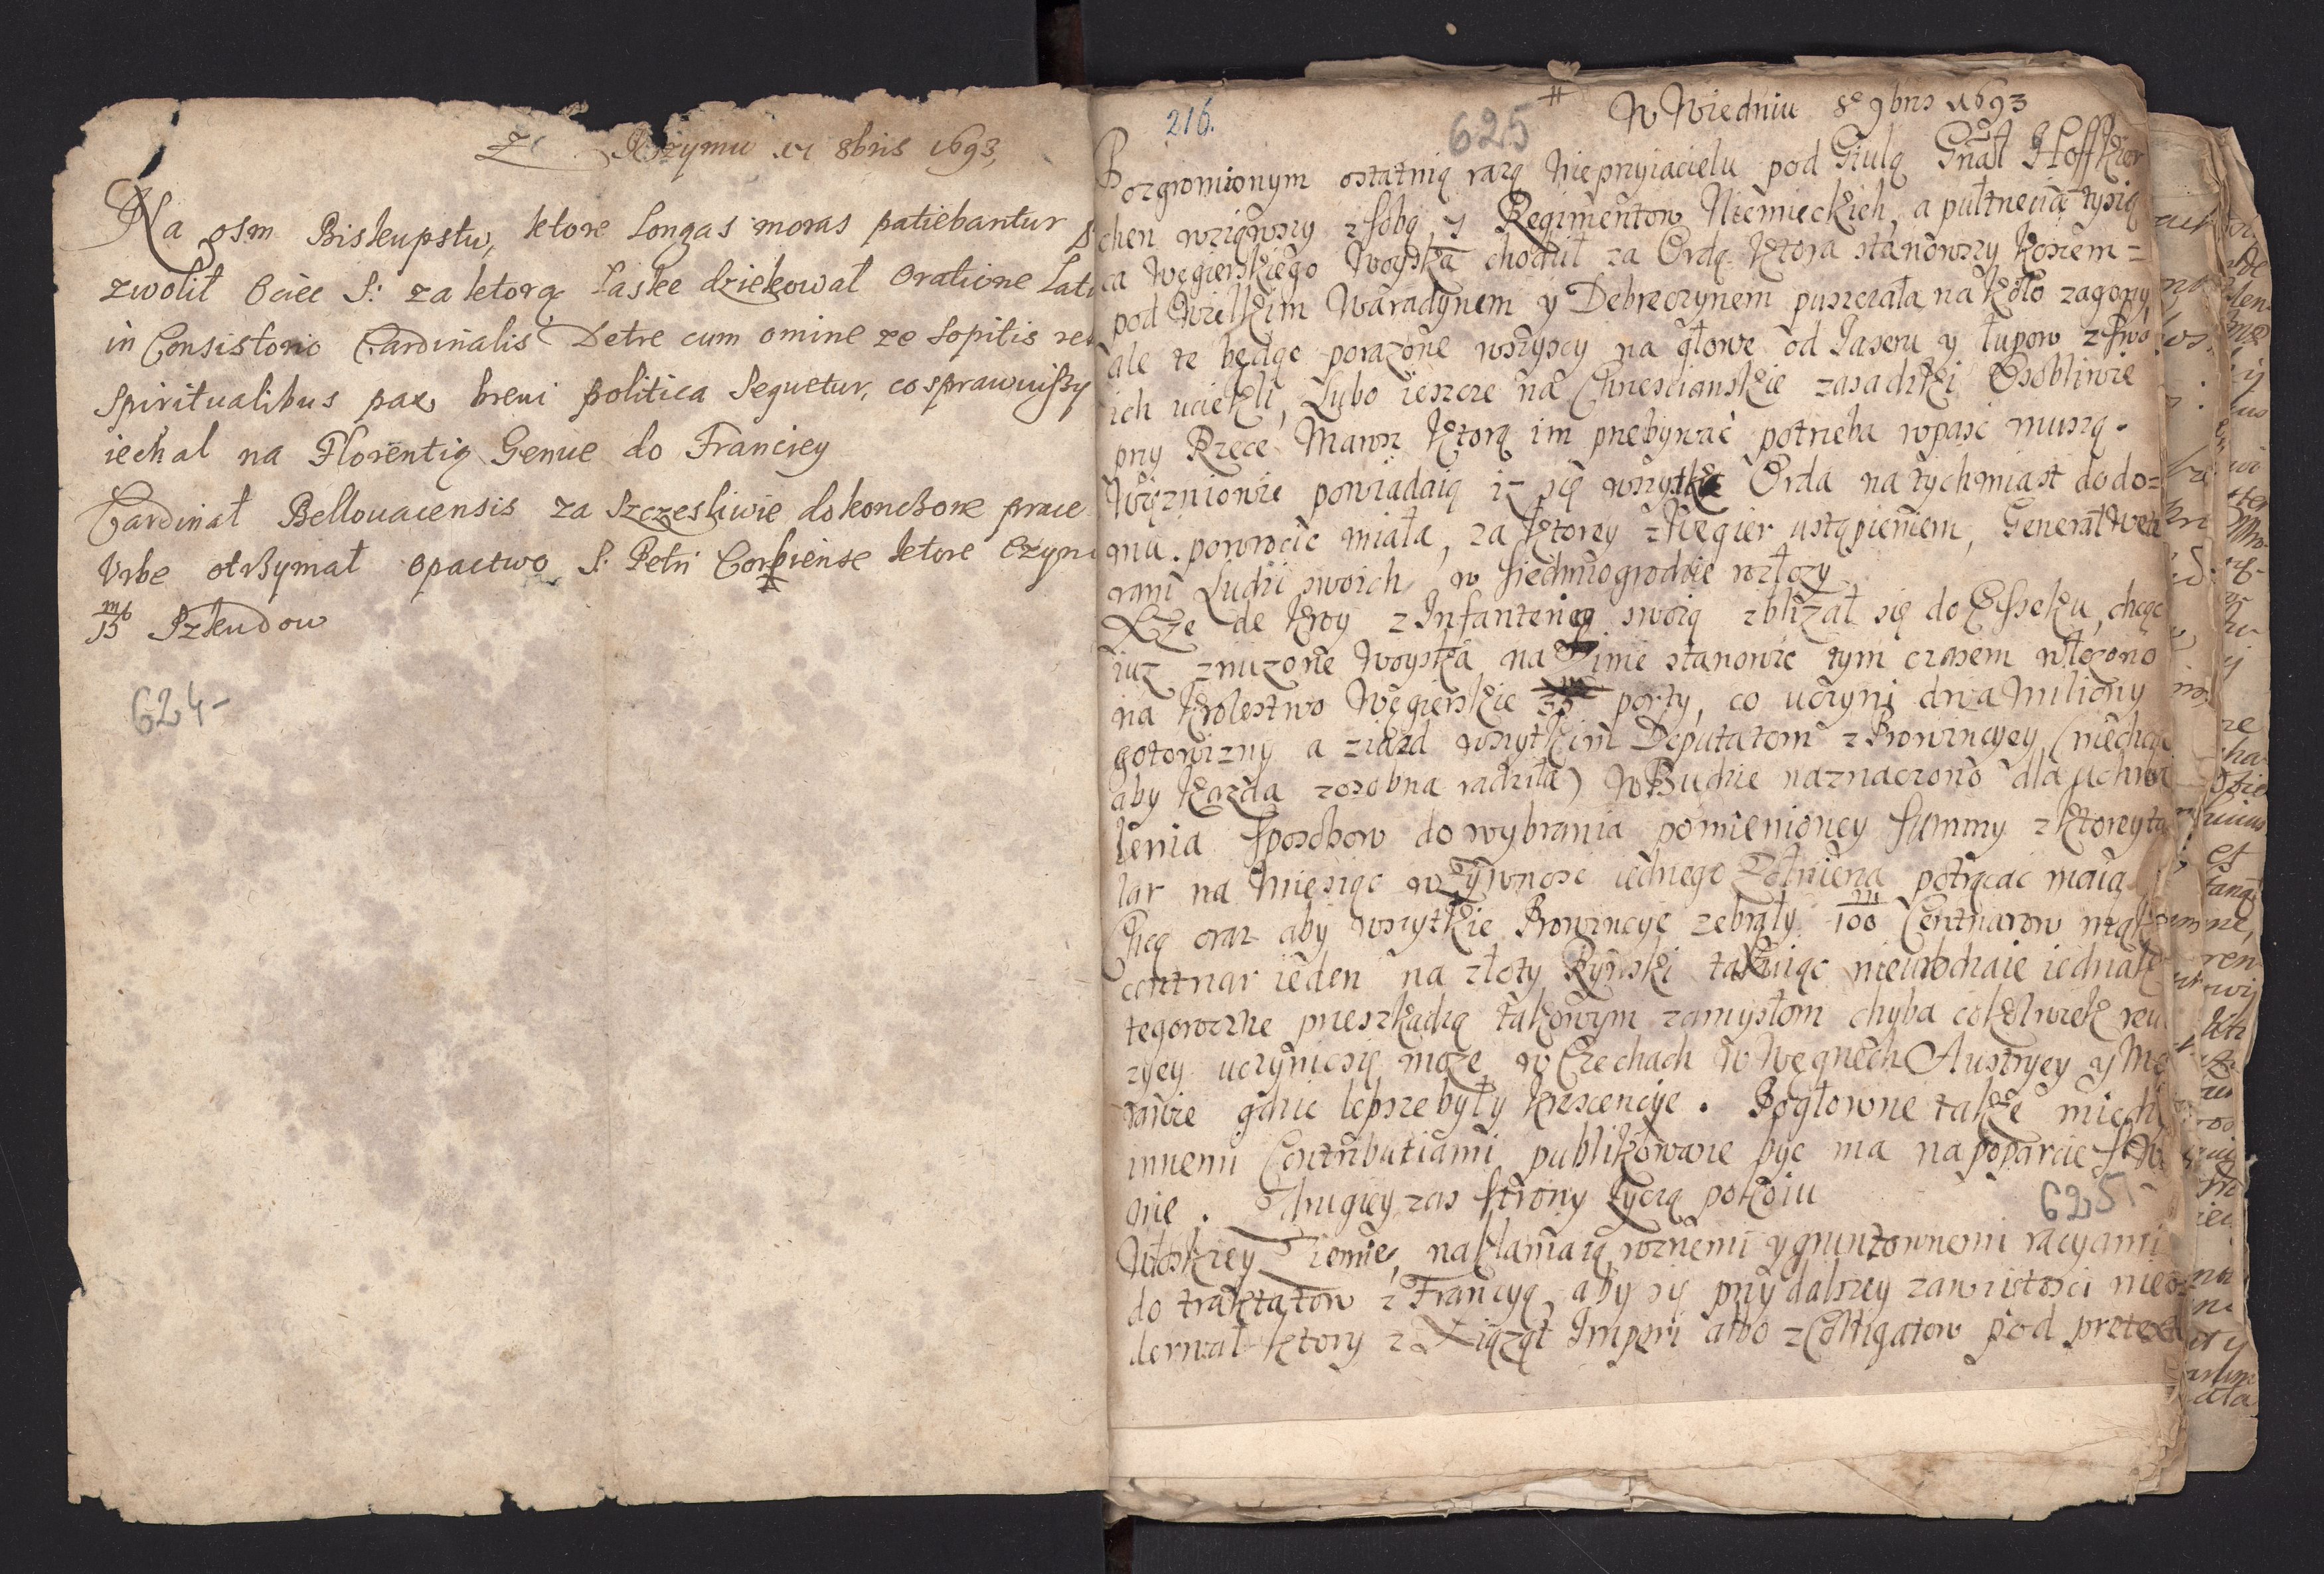 Z Rzymu 17 8bris 1693,
Na osm Biskupstw, ktore longas moras patiebantur
zwolił Ociec S: za ktorą Łaske dziekował Oratione Lati
in Consistorio Cardinalis Detre cum omine ze sopitis
Spiritualibus pax brevi politica Seguetur, co sprawuißy
iechal na Florentią Genue do Franciey
Cardinał Bellouacensis za Szczesliwie dokonczone prace
Vrbe otrzymał opactwo S: Petri Corbiense ktore Czyni
m/15 Szkudow
624-
216.
625
W Wiedniu 8º 9bris 1693
Rozgromionym ostatnią razą Nieprzyiacielu pod Giulą Gnał Hoffkier
chen wziąwszy z sobą 7 Regimentow Niemieckich, a pułtnecią tysią
ca Węgierskiego Woyska chodził za Ordą. Ktora stanowszy koszem=
pod Wielkim Waradynem y Debreczynem puszczała na koło zagony
ale te będąc porazone wszyscy na głowe od Jaseru y łupow z swo
ich uciekli, Lubo ieszcze na Chrzescianskie zasadzki Osobliwie
przy Rzece Marosz ktorą im przebywać potrzeba wpasc muszą.
Więzniowie powiadaią iz się wszytka Orda natychmiast do do=
mu powrocic miała, za ktorey z Węgier ustąpieniem, Generał Wete
rani Ludzi swoich w Siedmiogrodzie rozłozy
Xże de Kroy z Infanterią swoią zblizał się do Esseku, chcąc
iuz znuzone Woyska na Zimie stanowic tym czasem włozono
na Krolestwo Węgierskie porty, co uczyni dwa Miliony
gotowizny a ziazd wszytkim Deputatom z Prowincyey (niechcąc
aby kazda zosobna radziła) w Budzie naznaczono dla uchwa
lenia sposobow do wybrania pomienioney summy z ktorey ta
lar na Miesiąc w Zywnosc iednego Zołnierza potrącac maią
Chcą oraz aby wszytkie Prowincye zebrały 100 m Centnarow mąki
centnar ieden na złoty Rynski taxuiąc nieurodzaie iednak
tegoroczne przeszkadzą takowym zamysłom chyba cokolwiek
uczynic się moze w Czechach w Węgrzech Austryey y Mo
rawie gdzie lepsze były krescencye. Pogłowne także miedzy
innemi Contributiami publikowane byc ma na poparcie
nie. Z drugiey zas strony zyczą pokoiu
625
Włoskiey Ziemie, nakłaniaią roznemi y gruntownemi racyami
do traktatow z Francyą aby się przy dalszey zawzietosci nieo=
derwał ktory z Xiąząt Imperi albo z Colligatow pod pretex